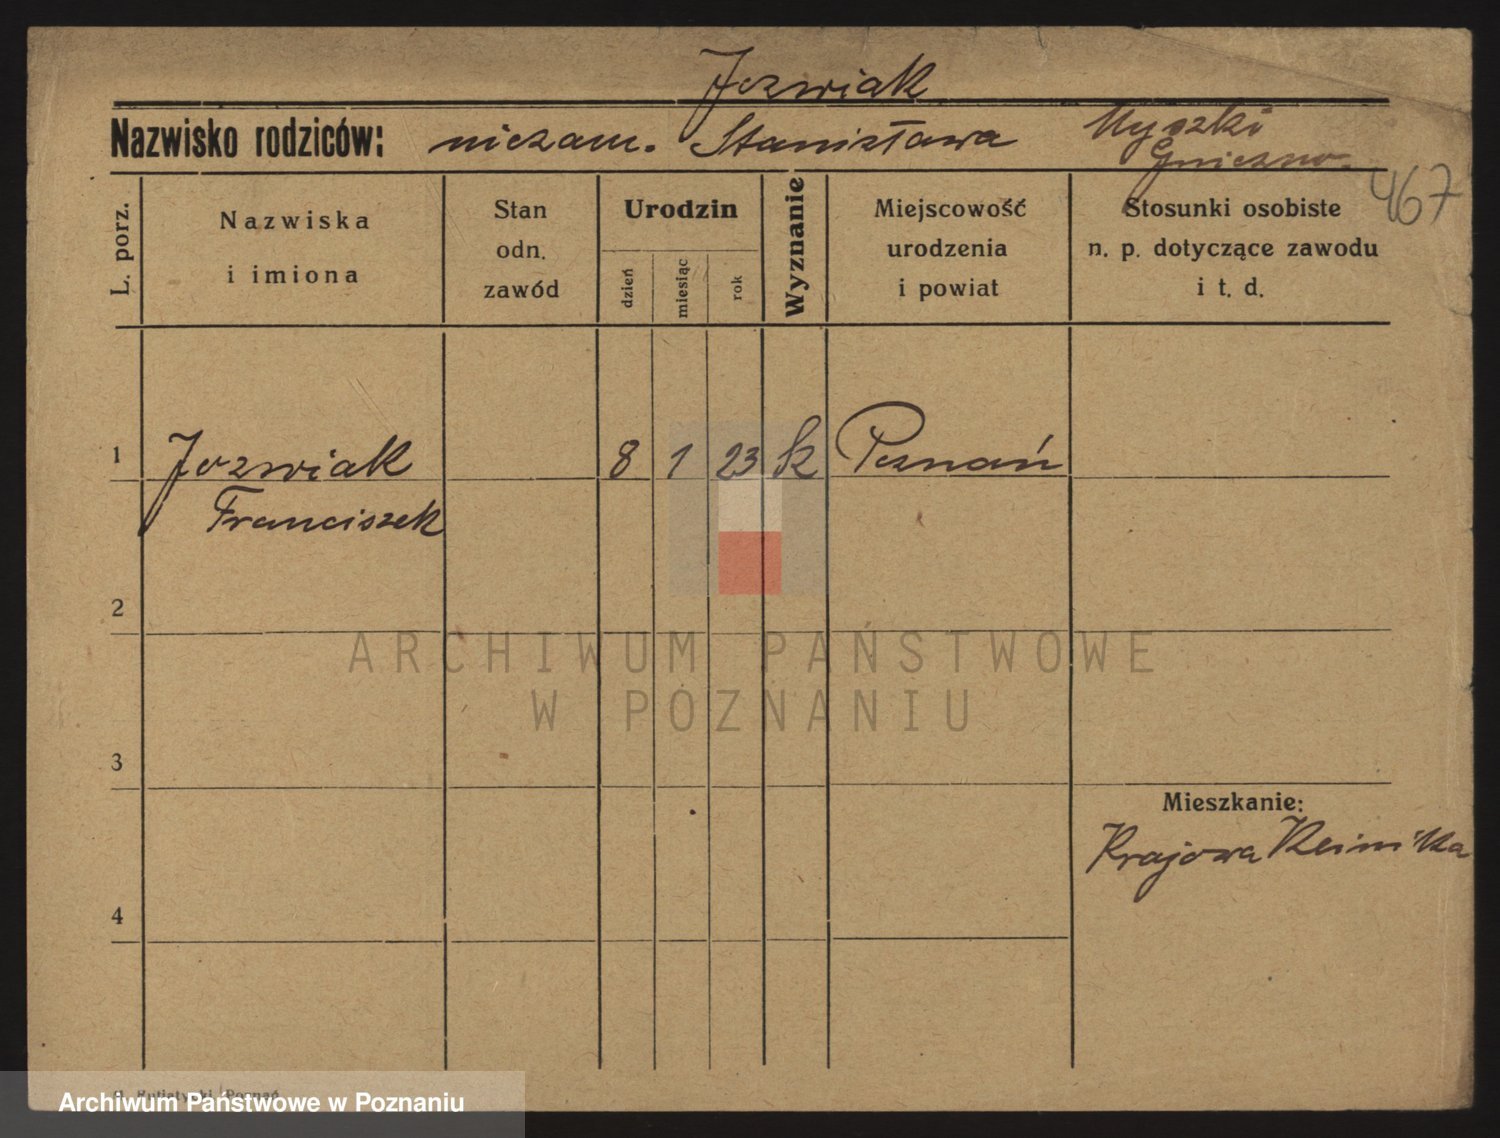 Jozwiak
Nazwisko rodziców: niezam. Stanisława Myszki
Gniezno.
467
L. porz.
Nazwiska
i imiona
Stan
odn.
zawód
Urodzin
dzień
miesiąc
rok
Wyznanie
Miejscowość
urodzenia
i powiat
Stosunki osobiste
n. p. dotyczące zawodu
i t. d.
1 Jozwiak 8 1 23 k Poznań
Franciszek
2
3
Mieszkanie:
Krajowa Klinika
4
ARCHIWUM PAŃSTWOWE
W POZNANIU
Poznań
Archiwum Państwowe w Poznaniu